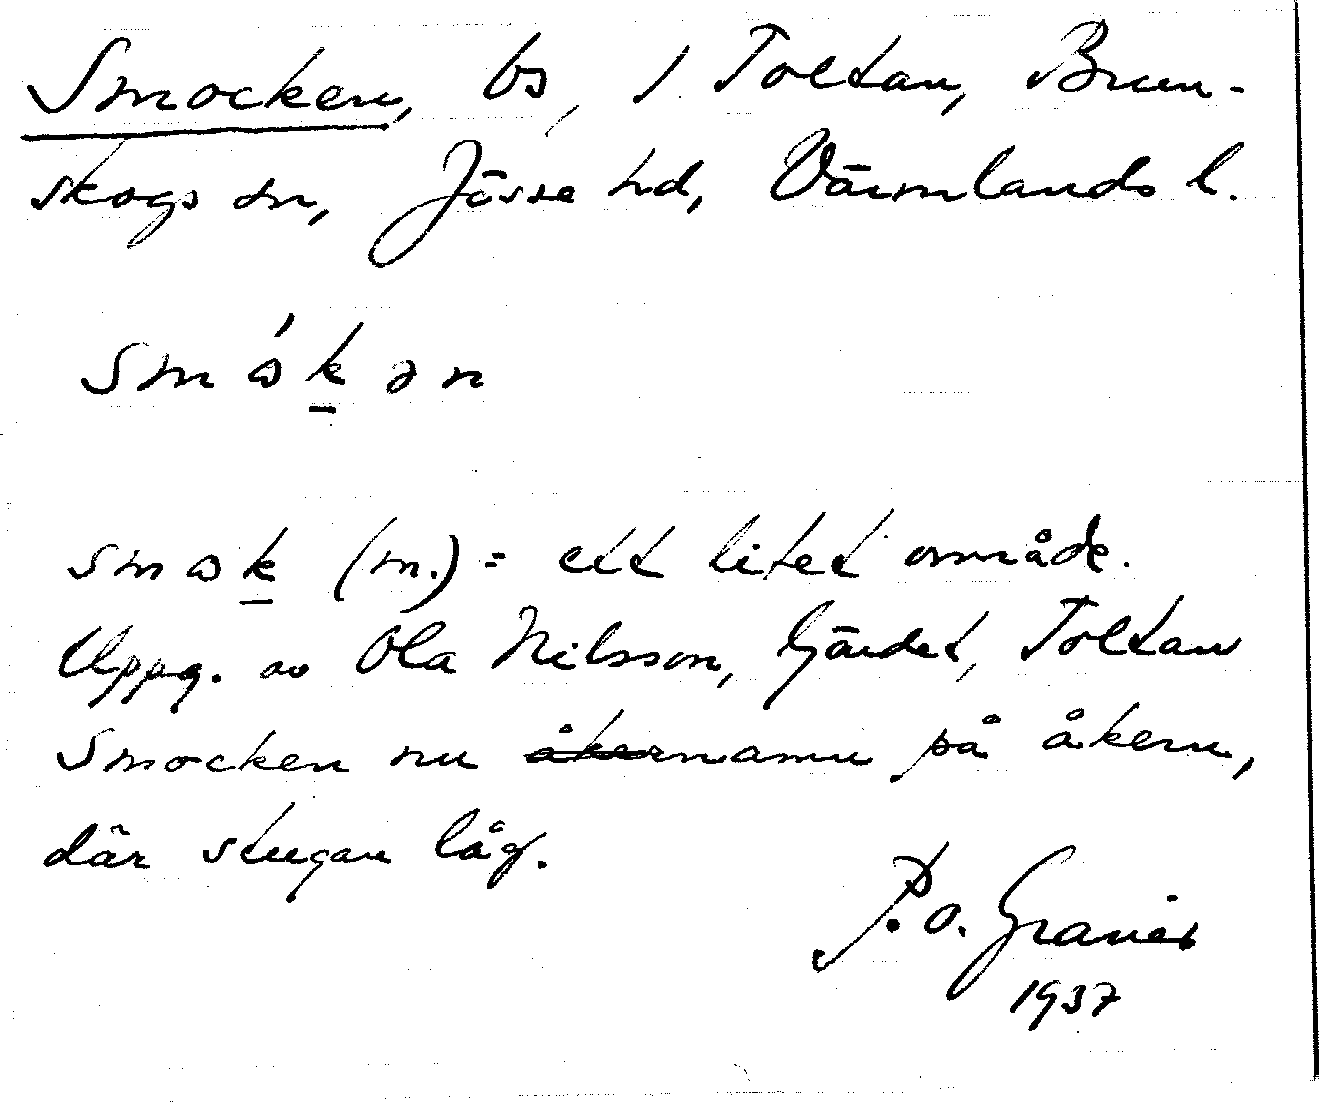 Smocken, bs, 1 Toltan, Brun-
skogs sn, Jösse hd, Värmlands l.
smɷ́k̲ən
smɷk̲ (m.) = ett litet område.
Uppg. av Ola Nilsson, Gärdet, Toltan
Smocken nu åkernamn på åkern,
där stugan låg.
P. O. Granér
1937